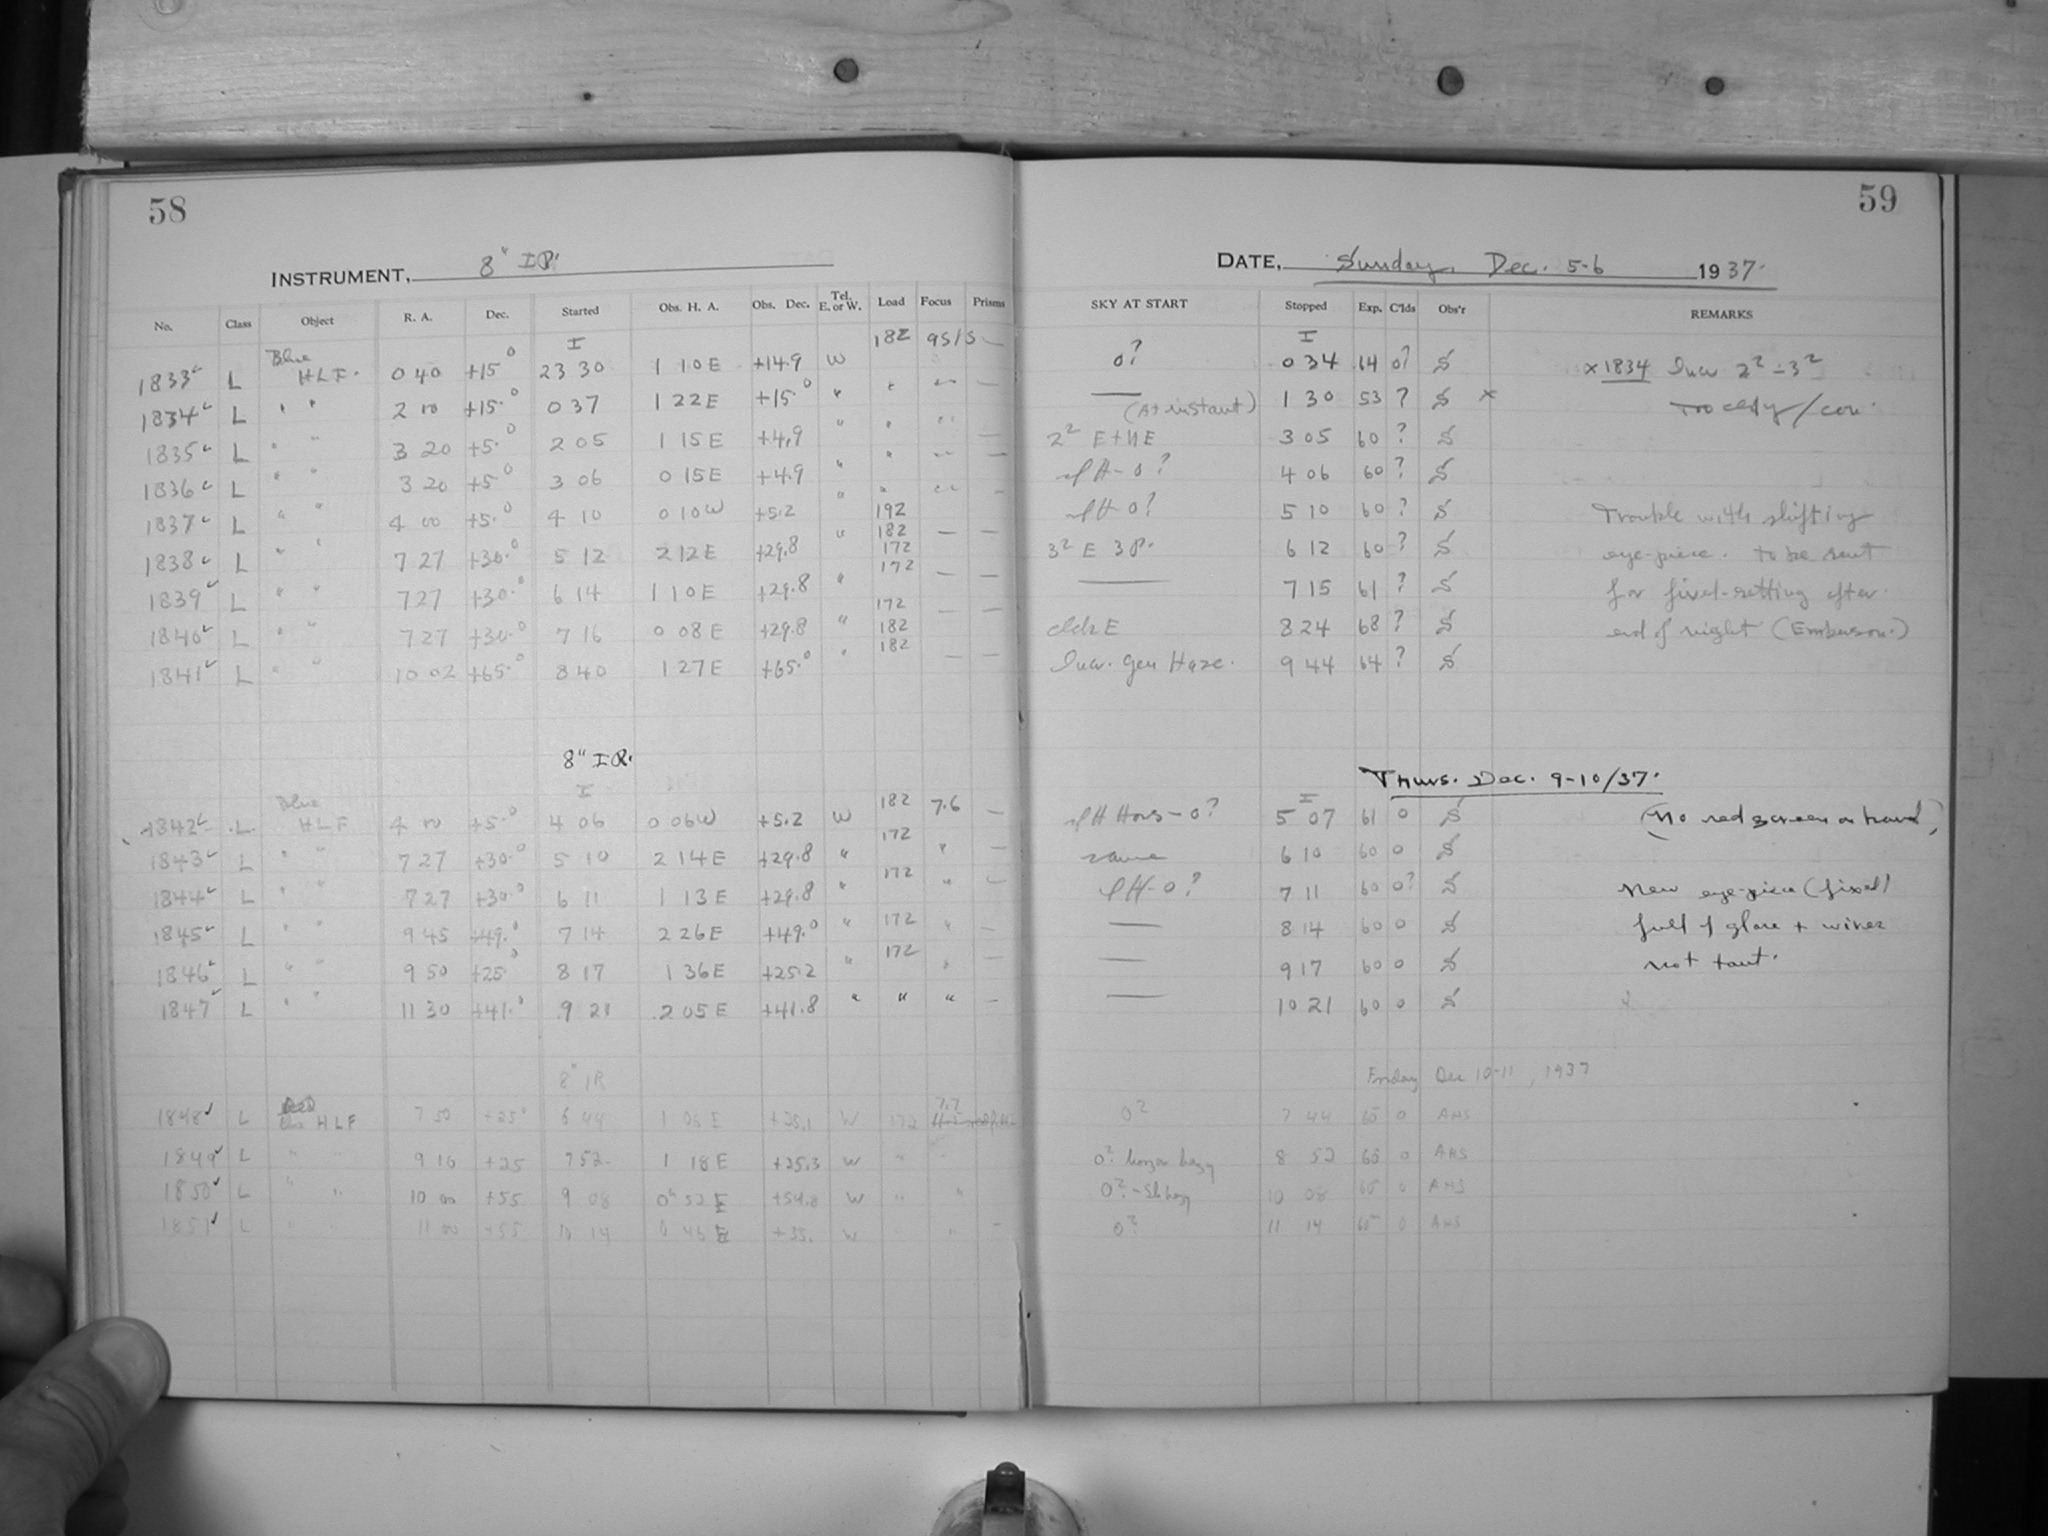 58
INSTRUMENT, 8" IR.
No. Class Object R. A. Dec. Started Obs. H. A. Obs. Dec. Tel. E. or W. Load Focus Prisms
I 182 95/5 —
1833 L Blue HLF. 0 40 +15° 23 30 1 10 E +14.9 W
1834 L " " 2 10 +15.° 0 37 1 22 E +15.° "
1835 L " " 3 20 +5.° 2 05 1 15 E +4.9 "
1836 L " " 3 20 +5° 3 06 0 15 E +4.9 "
1837 L " " 4 00 +5.° 4 10 0 10 W +5.2 " 192
182
1838 L " " 7 27 +30.° 5 12 2 12 E +29.8 " 172 — —
172
1839 L " " 7 27 +30.° 6 14 1 10 E +29.8 " — —
172
1840 L " " 7 27 +30.° 7 16 0 08 E +29.8 " 182 — —
182
1841 L " " 10 02 +65.° 8 40 1 27 E +65.° " — —
8" IR.
I
1842 L Blue HLF 4 10 +5.° 4 06 0 06 W +5.2 W 182 7.6 —
1843 L " " 7 27 +30.° 5 10 2 14 E +29.8 " 172 " —
1844 L " " 7 27 +30° 6 11 1 13 E +29.8 " 172 " —
1845 L " " 9 45 +49.° 7 14 2 26 E +49.° " 172 " —
1846 L " " 9 50 +25° 8 17 1 36 E +25.2 " 172 " —
1847 L " " 11 30 +41.° 9 21 2 05 E +41.8 " " " —
8" IR
1848 L HLF 7 50 +25° 6 44 1 05 E +25.1 W 172 7.7
1849 L " " 9 10 +25 7 52 1 18 E +25.3 W "
1850 L " " 10 00 +55 9 08 0 52 E +54.8 W " "
1851 L " " 11 00 +55 10 14 0 45 E +55. W " " —
59
DATE, Sunday, Dec. 5-6 1937.
SKY AT START Stopped Exp. C'lds Obs'r REMARKS
I
0? 0 34 64 0? S x 1834 Incr 2² – 3²
— (At instant) 1 30 53 ? S x Too cldy/con.
2² E + NE 3 05 60 ? S
0? 4 06 60 ? S
0? 5 10 60 ? S Trouble with shifting
3² E 3 P. 6 12 60 ? S eye-piece. to be sent
— 7 15 61 ? S for fixed-setting after
clds E 8 24 68 ? S end of night (Emberson.)
Incr. gen Haze. 9 44 64 ? S
Thurs. Dec. 9-10/37.
I
Hors – 0? 5 07 61 0 S (No red screen on hand)
same 6 10 60 0 S
0? 7 11 60 0? S New eye-piece (fixed)
— 8 14 60 0 S full of glare + wires
— 9 17 60 0 S not taut.
— 10 21 60 0 S
Friday Dec 10-11, 1937
0? 7 44 60 0 AHS
0? horizon hazy 8 52 60 0 AHS
0? – Sl. hazy 10 08 60 0 AHS
0? 11 14 60 0 AHS